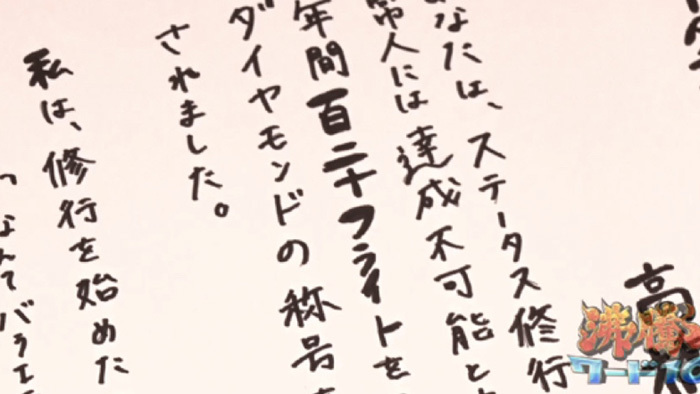 高
なたは、ステータス修行
常人には達成不可能と
年間百二十フライトを
ダイヤモンドの称号
されました。
私は、修行を始めた
なんてバラエ
沸騰ワード10